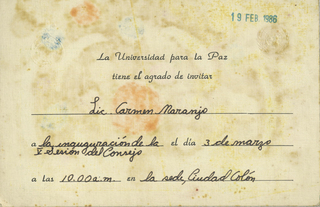 19 FEB 1986
La Universidad para la Paz
tiene el agrado de invitar
Lic. Carmen Naranjo
a la inauguración de la el día 3 de marzo
V Sesión del Consejo
a las 10.00 a.m. en la sede, Ciudad Colón